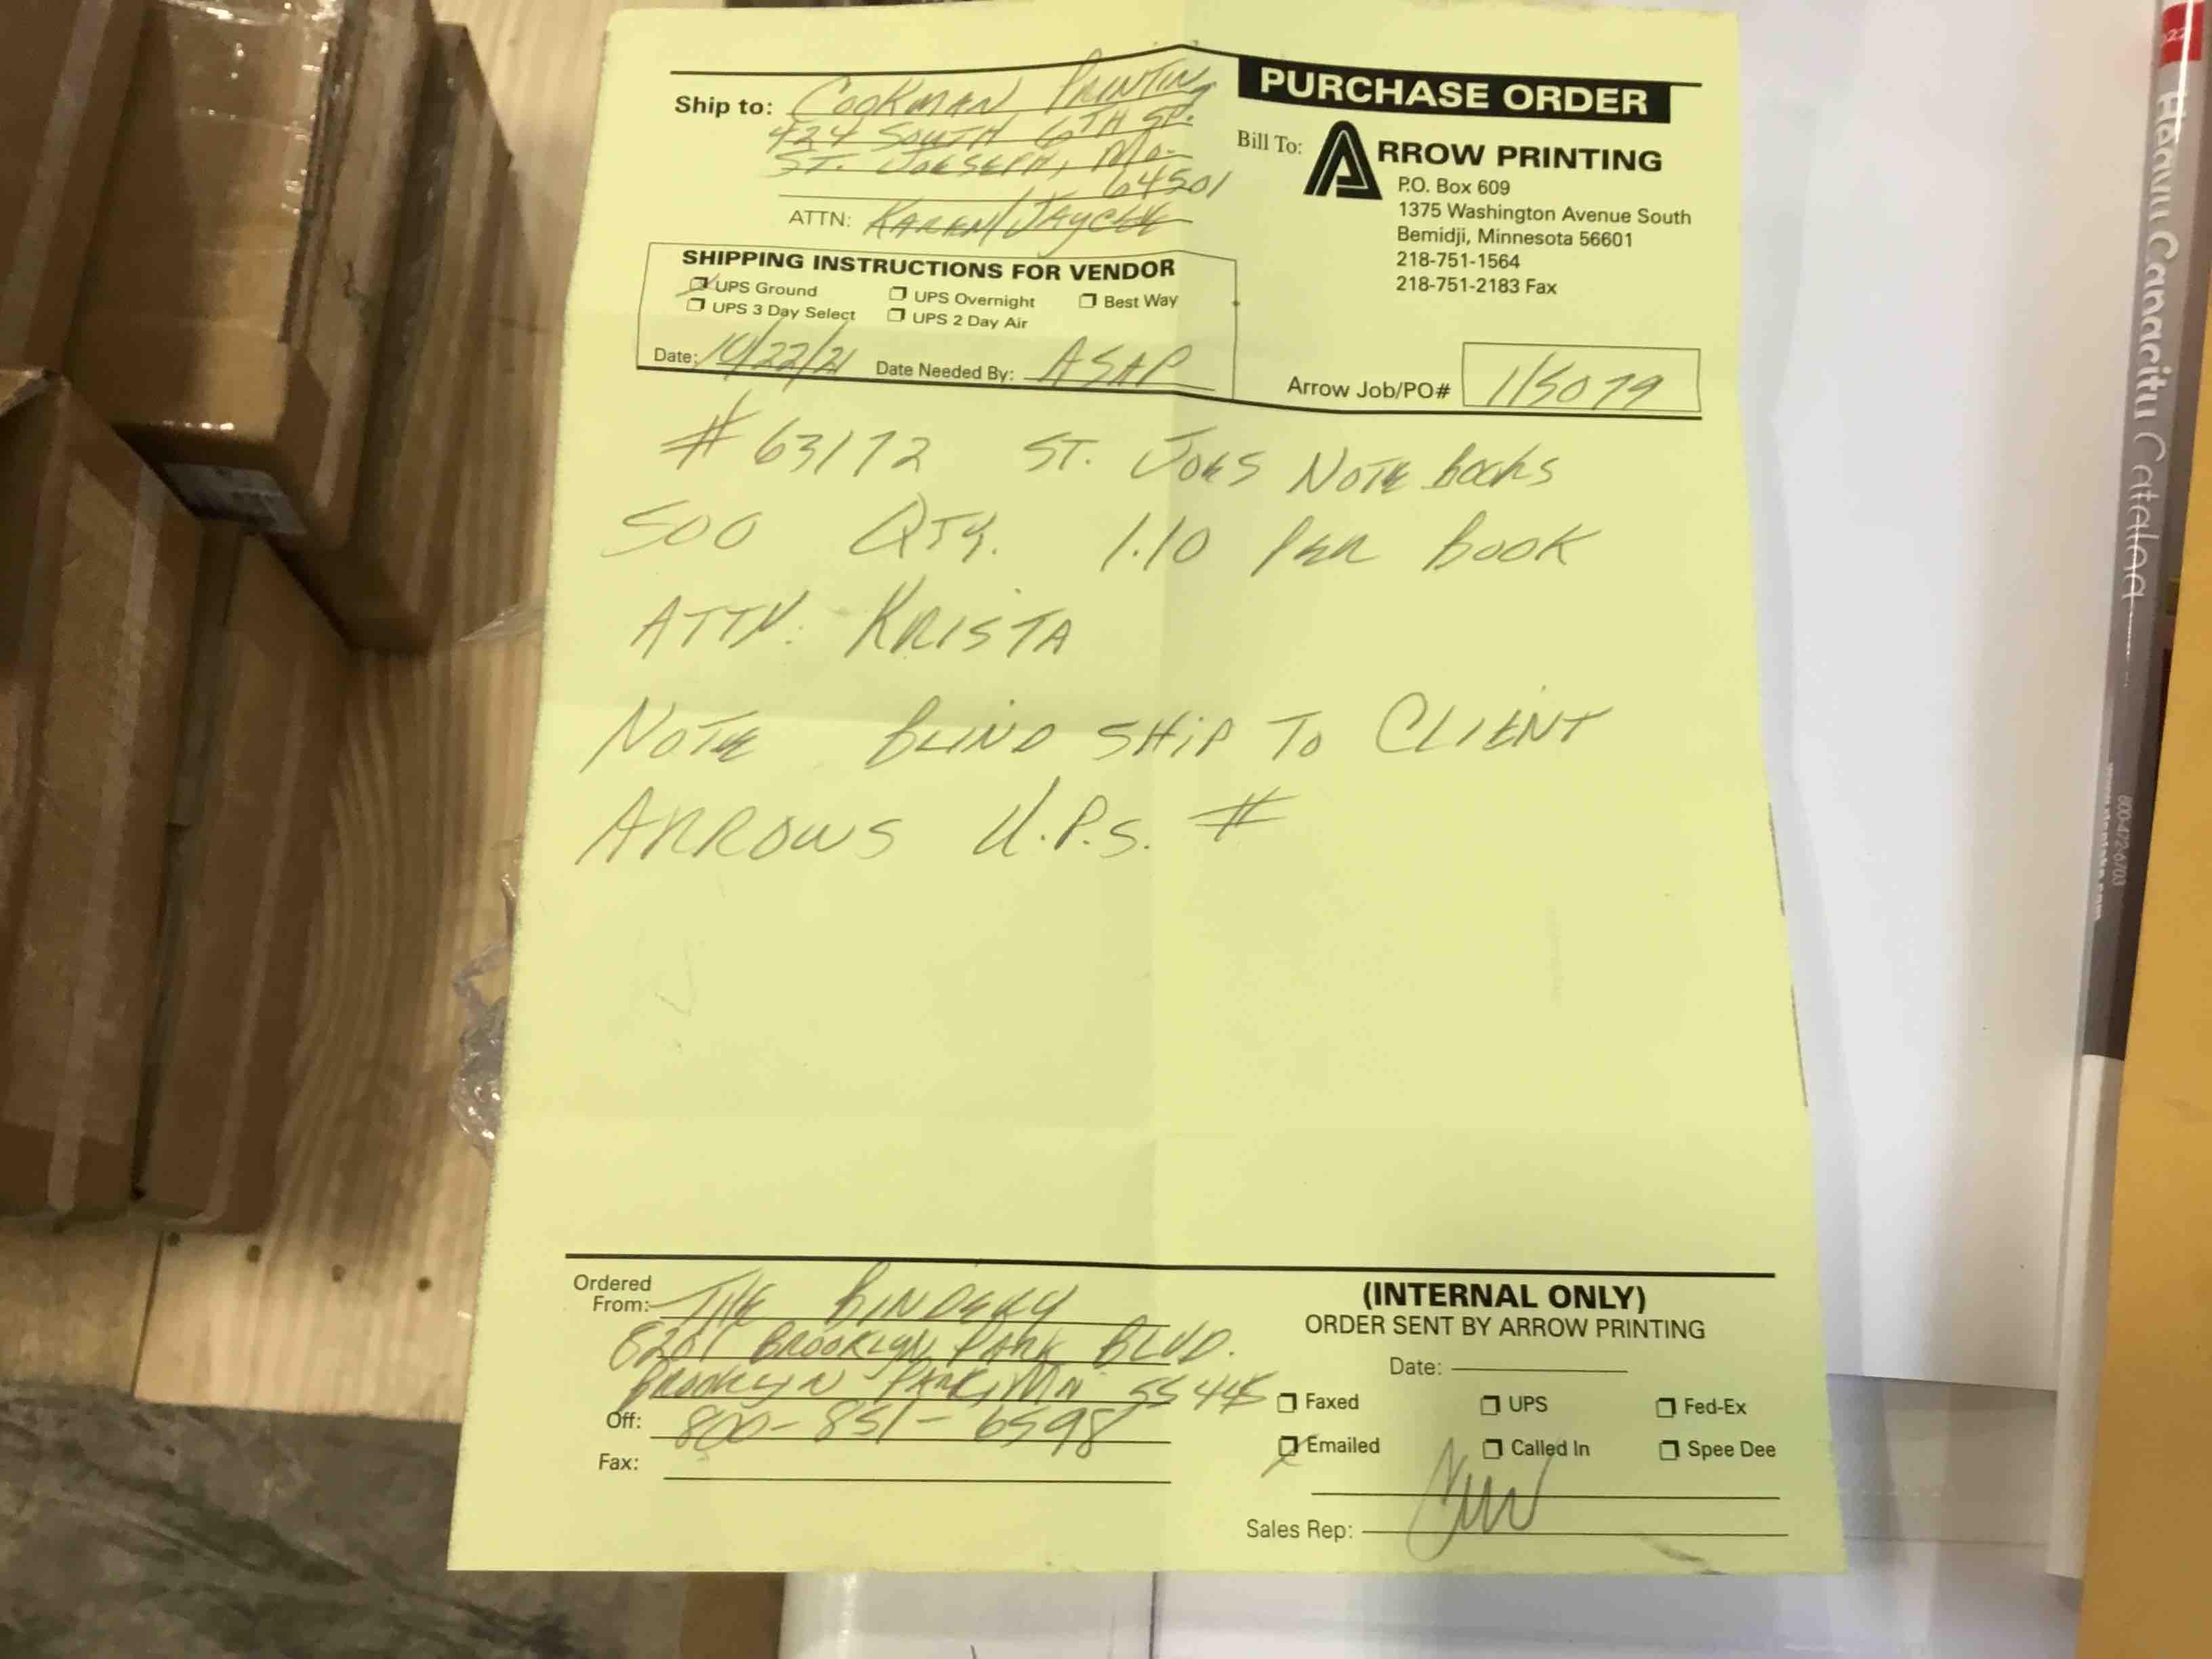 PURCHASE ORDER
Ship to: COOKMAN PRINTING
424 SOUTH 6TH ST.
ST. JOESEPH, MO.
64501
ATTN: KAREN/JAYCEE
Bill To: ARROW PRINTING
P.O. Box 609
1375 Washington Avenue South
Bemidji, Minnesota 56601
218-751-1564
218-751-2183 Fax
SHIPPING INSTRUCTIONS FOR VENDOR
UPS Ground UPS Overnight Best Way
UPS 3 Day Select UPS 2 Day Air
Date: 10/22/21 Date Needed By: ASAP
Arrow Job/PO# 115079
#63172 ST. JOES NOTE books
500 QTY. 1.10 PER BOOK
ATTN: KRISTA
NOTE BLIND SHIP TO CLIENT
ARROWS U.P.S. #
Ordered
From: THE BINDERY
8201 BROOKLYN PARK BLVD.
BROOKLYN PARK, MN 55445
Off: 800-851-6598
Fax:
(INTERNAL ONLY)
ORDER SENT BY ARROW PRINTING
Date:
Faxed UPS Fed-Ex
Emailed Called In Spee Dee
Sales Rep:
Heavy Capacity Catalog
800-472-6703